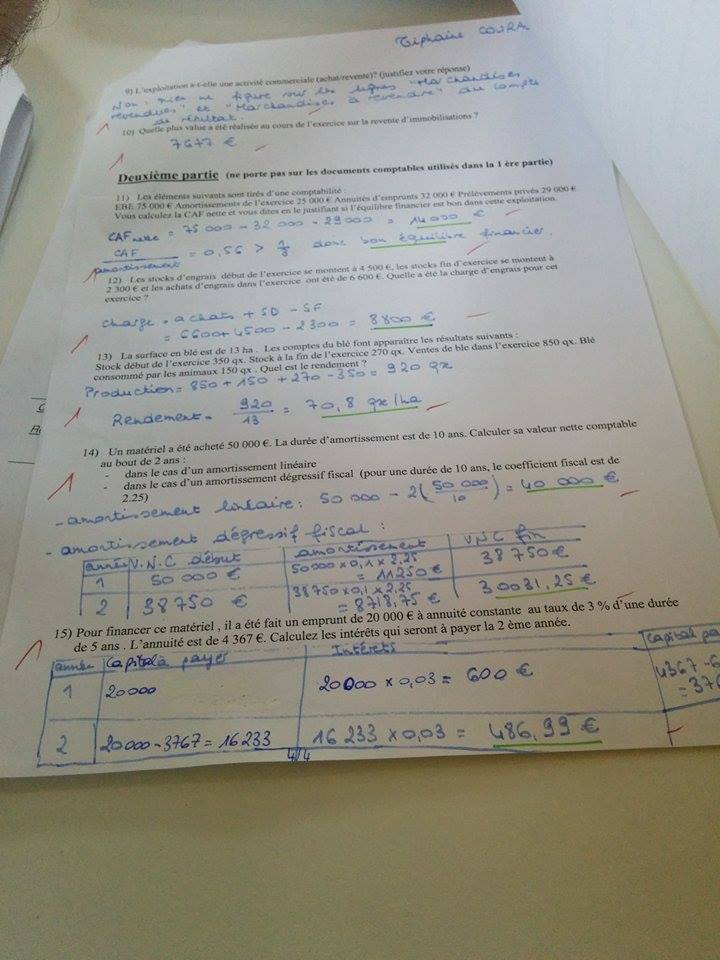 Tiphaine COURA
9) L'exploitation a-t-elle une activité commerciale (achat/revente)? (justifiez votre réponse)
Non, rien ne figure sur les lignes "Marchandises
revendues" et "Marchandises à revendre" du compte
de résultat.
10) Quelle plus value a été réalisée au cours de l'exercice sur la revente d'immobilisations ?
7677 €
Deuxième partie (ne porte pas sur les documents comptables utilisés dans la 1 ère partie)
11) Les éléments suivants sont tirés d'une comptabilité :
EBE 75 000 € Amortissements de l'exercice 25 000 € Annuités d'emprunts 32 000 € Prélèvements privés 29 000 €
Vous calculez la CAF nette et vous dites en le justifiant si l'équilibre financier est bon dans cette exploitation.
CAF nette = 75 000 - 32 000 - 29000 = 14 000 €
CAF / amortissement = 0,56 > donc bon équilibre financier.
12) Les stocks d'engrais début de l'exercice se montent à 4 500 €, les stocks fin d'exercice se montent à
2 300 € et les achats d'engrais dans l'exercice ont été de 6 600 €. Quelle a été la charge d'engrais pour cet
exercice ?
Charge = achats + SD - SF
= 6600 + 4500 - 2300 = 8800 €
13) La surface en blé est de 13 ha . Les comptes du blé font apparaître les résultats suivants :
Stock début de l'exercice 350 qx. Stock à la fin de l'exercice 270 qx. Ventes de ble dans l'exercice 850 qx. Blé
consommé par les animaux 150 qx . Quel est le rendement ?
Production = 850 + 150 + 270 - 350 = 920 qx
Rendement = 920 / 13 = 70,8 qx/ha
14) Un matériel a été acheté 50 000 €. La durée d'amortissement est de 10 ans. Calculer sa valeur nette comptable
au bout de 2 ans :
- dans le cas d'un amortissement linéaire
- dans le cas d'un amortissement dégressif fiscal (pour une durée de 10 ans, le coefficient fiscal est de
2.25)
- amortissement linéaire : 50 000 - 2(50 000 / 10) = 40 000 €
- amortissement dégressif fiscal :
année V.N.C début amortissement VNC fin
1 50 000 € 50000 x 0,1 x 2,25 = 11250 € 38 750 €
2 38 750 € 38750 x 0,1 x 2,25 = 8718,75 € 30031,25 €
15) Pour financer ce matériel , il a été fait un emprunt de 20 000 € à annuité constante au taux de 3 % d'une durée
de 5 ans . L'annuité est de 4 367 €. Calculez les intérêts qui seront à payer la 2 ème année.
année Capital à payer Intérêts Capital
1 20000 20000 x 0,03 = 600 € 4367 -
2 20000 - 3767 = 16 233 16 233 x 0,03 = 486,99 €
4/4